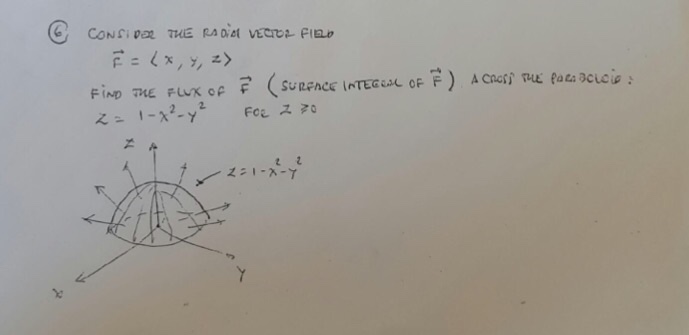 6 CONSIDER THE RADIAL VECTOR FIELD
F⃗ = ⟨x, y, z⟩
FIND THE FLUX OF F⃗ (SURFACE INTEGRAL OF F⃗) ACROSS THE PARABOLOID:
z = 1-x²-y² FOR z ≥0
z
z=1-x²-y²
x
y